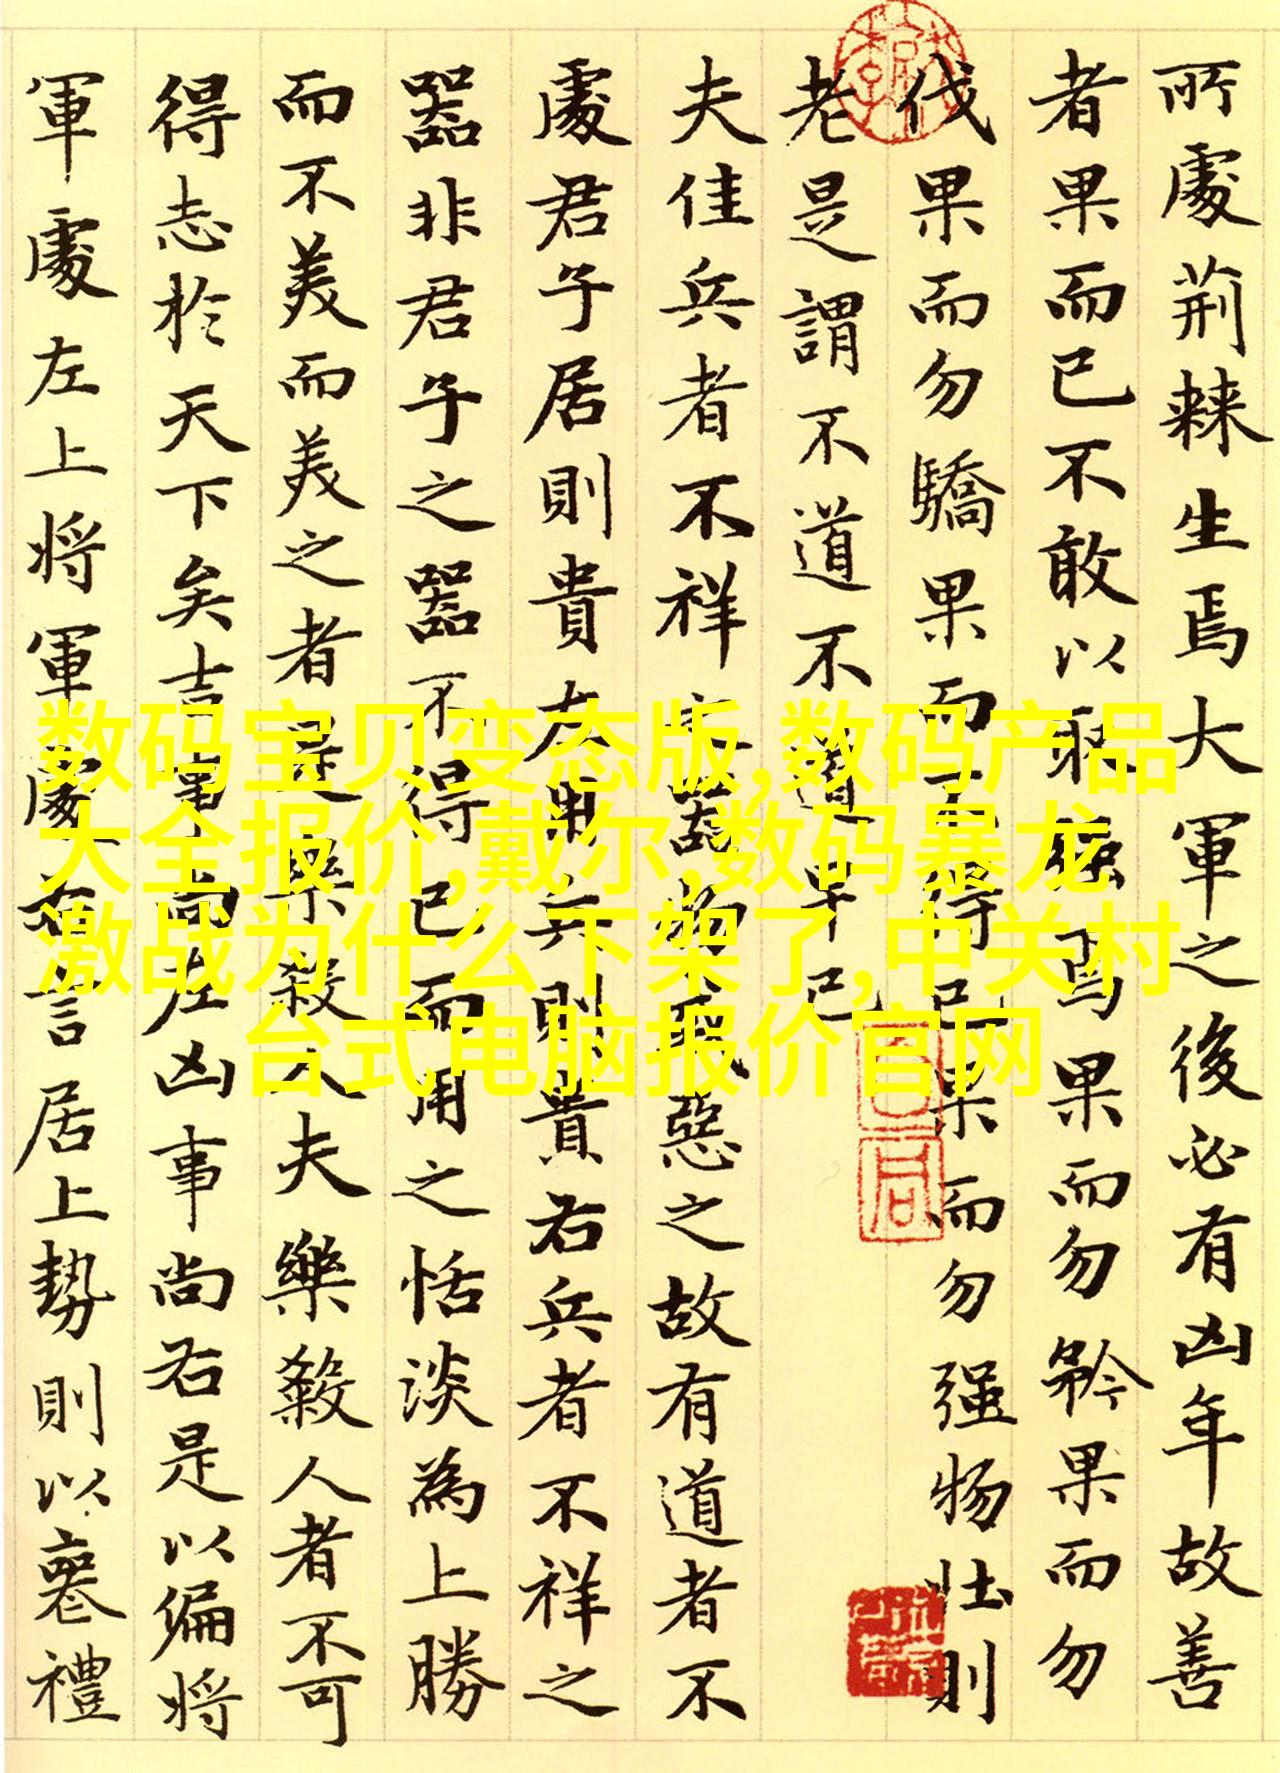 所處荊棘生焉大軍之後必有凶年故善
者果而已不敢以取强焉果而勿矜果而勿
伐果而勿驕果而不得已果而勿强物壯則
老是謂不道不道早已
夫佳兵者不祥之器物或惡之故有道者不
處君子居則貴左用兵則貴右兵者不祥之
器非君子之器不得已而用之恬淡為上勝
而不美而美之者是樂殺人夫樂殺人者不可
得志於天下矣吉事尚左凶事尚右是以偏將
軍處左上將軍處右言居上勢則以喪禮
数码宝贝变态版,数码产品
大全报价,戴尔,数码暴龙
激战为什么下架了,中关村
台式电脑报价官网